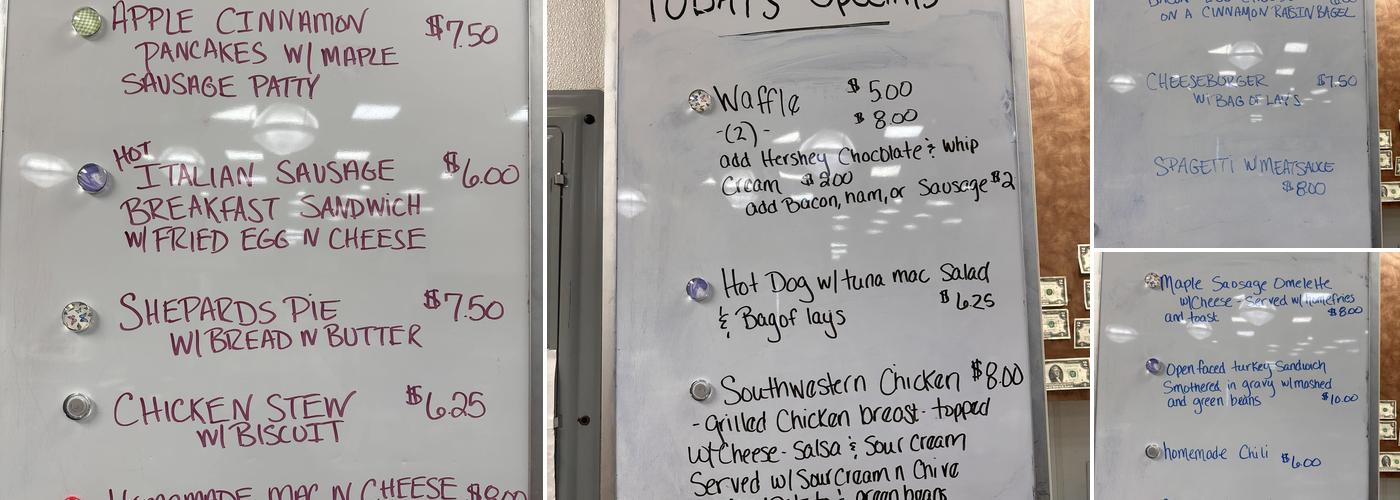 APPLE CINNAMON $7.50
PANCAKES W/ MAPLE
SAUSAGE PATTY
HOT
ITALIAN SAUSAGE $6.00
BREAKFAST SANDWICH
W/ FRIED EGG N CHEESE
SHEPARDS PIE $7.50
W/ BREAD N BUTTER
CHICKEN STEW $6.25
W/ BISCUIT
HOMEMADE MAC N CHEESE $8.00
TODAY'S Specials
Waffle $5.00
-(2)- $8.00
add Hershey Chocolate & whip
Cream $2.00
add Bacon, ham, or Sausage $2
Hot Dog w/ tuna mac Salad
& Bag of lays $6.25
Southwestern Chicken $8.00
- grilled Chicken breast - topped
w/ Cheese - Salsa & Sour Cream
Served w/ Sour Cream n Chive
green beans
ON A CINNAMON RAISIN BAGEL
CHEESEBURGER $7.50
W/ BAG OF LAYS
SPAGETTI W/ MEATSAUCE
$8.00
Maple Sausage Omelette
w/ Cheese - Served w/ homefries
and toast $8.00
Open faced turkey Sandwich
Smothered in gravy w/ mashed
and green beans $10.00
homemade Chili $6.00